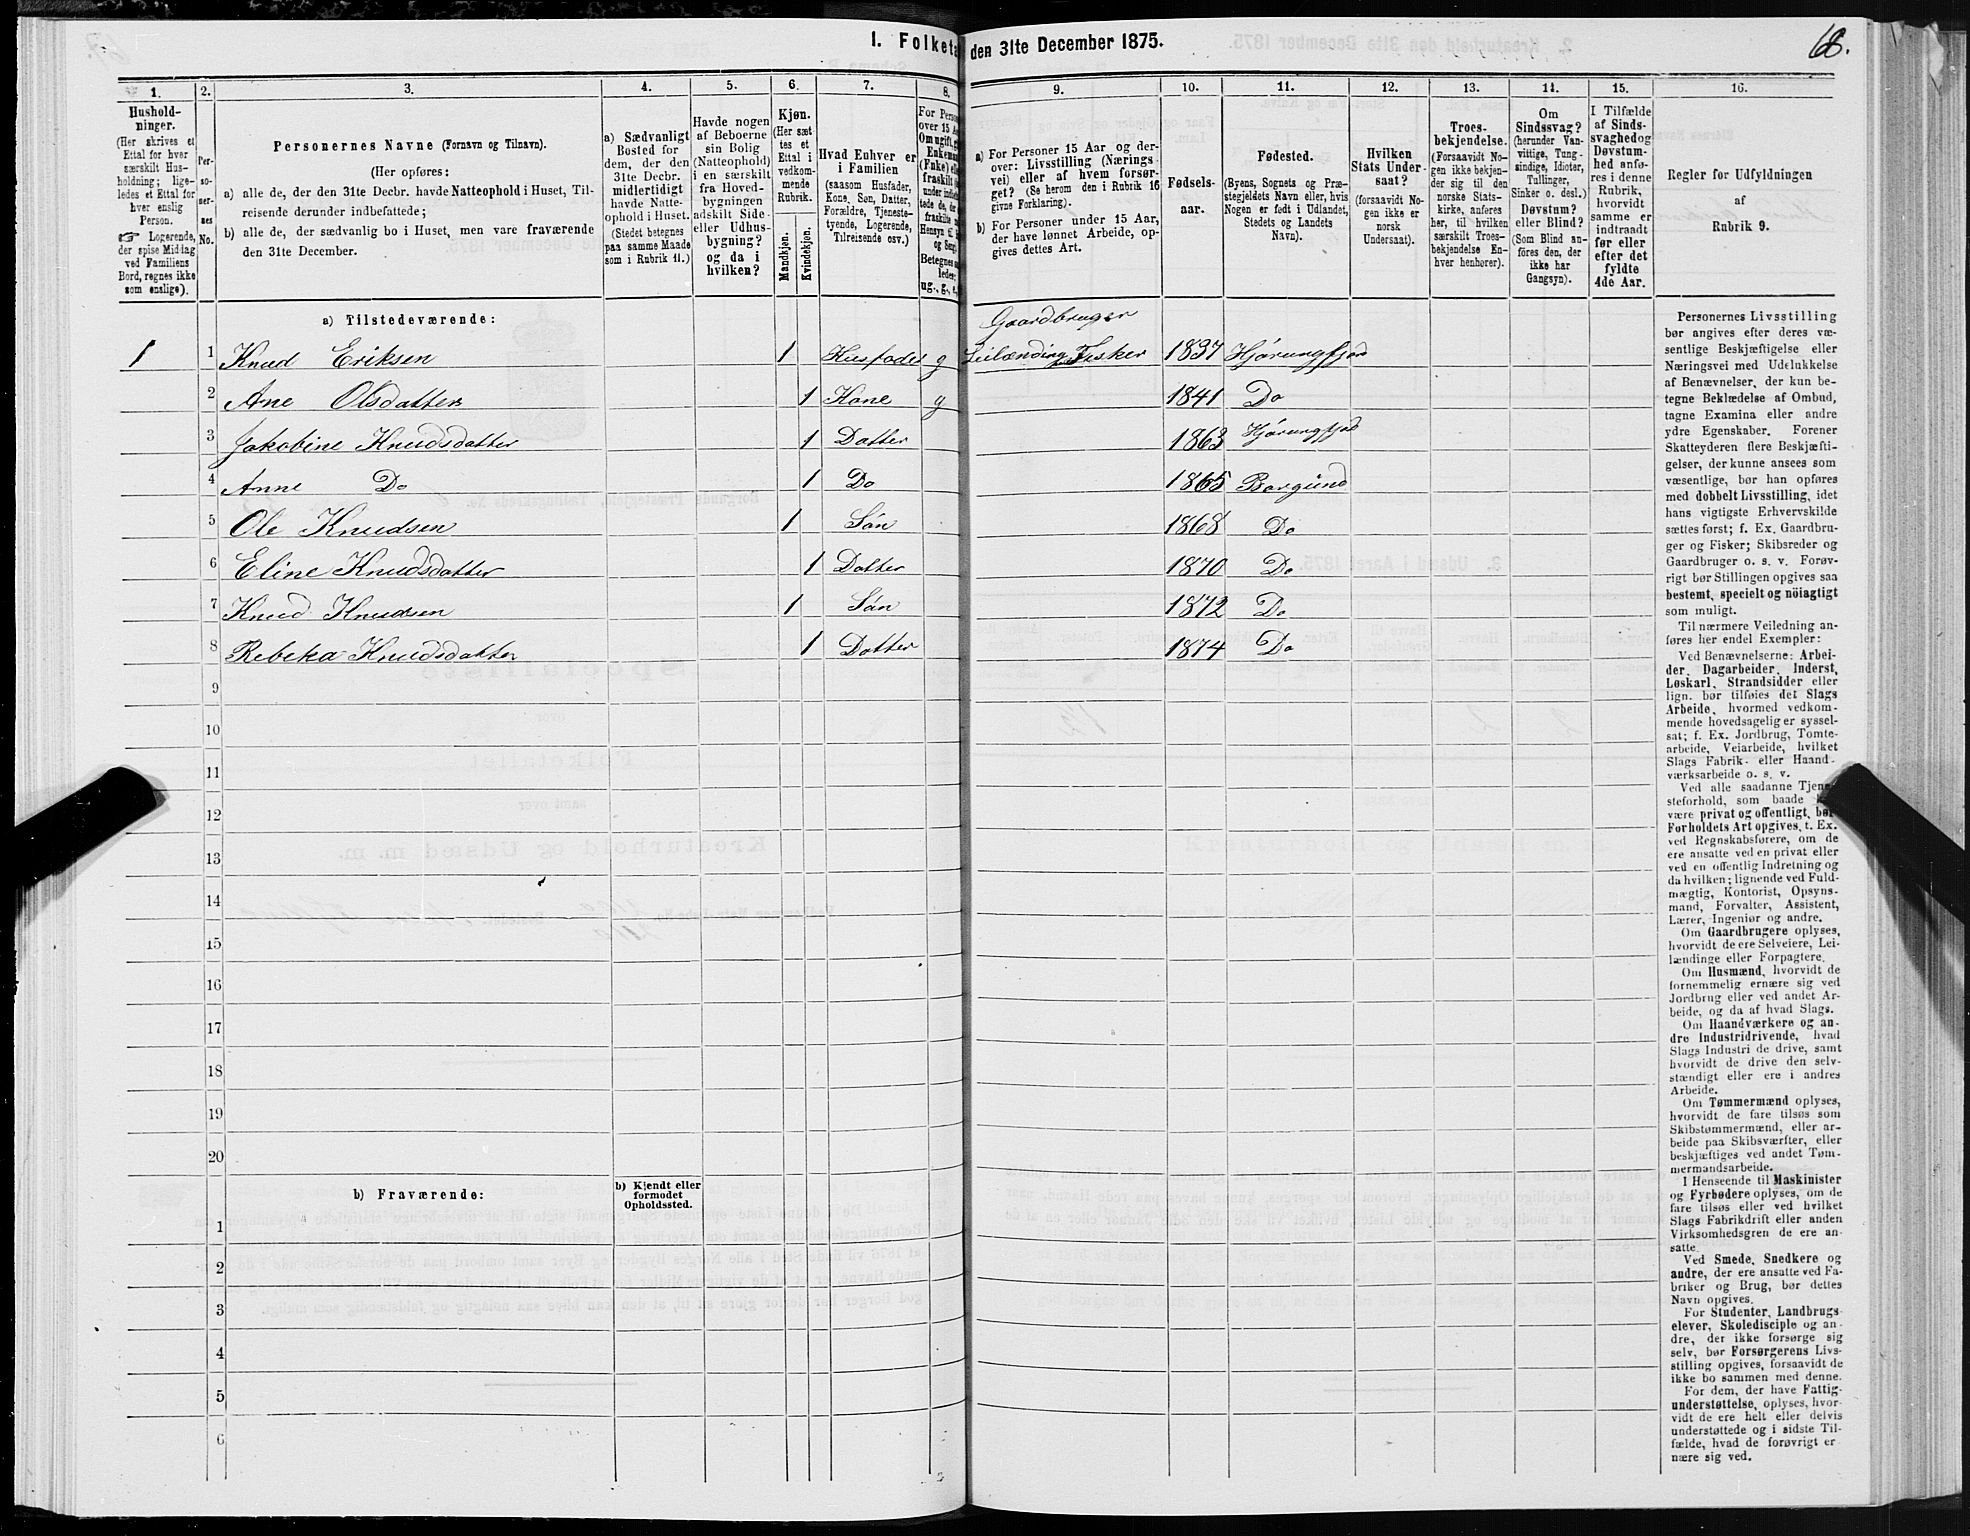 1. Folketa
den 31te December 1875.
68.
1.
2.
3.
4.
5.
6.
7.
8.
9.
10.
11.
12.
13.
14.
15.
16.
Hushold-
ninger.
(Her skrives et
Ettal for hver
særskilt Hus-
holdning; lige-
ledes et Ettal for
hver enslig
Person.
☞ Logerende,
der spise Middag
ved Familiens
Bord, regnes ikke
som enslige).
Per-
so-
ner-
nes
No.
Personernes Navne (Fornavn og Tilnavn).
(Her opføres:
a) alle de, der den 31te Decbr. havde Natteophold i Huset, Til-
reisende derunder indbefattede;
b) alle de, der sædvanlig bo i Huset, men vare fraværende
den 31te December.
a) Sædvanligt
Bosted for
dem, der den
31te Decbr.
midlertidigt
havde Natte-
ophold i Huset.
(Stedet betegnes
paa samme Maade
som i Rubrik 11.)
Havde nogen
af Beboerne
sin Bolig
(Natteophold)
i en særskilt
fra Hoved-
bygningen
adskilt Side-
eller Udhus-
bygning?
og da i
hvilken?
Kjøn.
(Her sæt-
tes et
Ettal i
vedkom-
mende
Rubrik.
Mandkjøn.
Kvindekjøn.
Hvad Enhver er
i Familien
(saasom Husfader,
Kone, Søn, Datter,
Forældre, Tjeneste-
tyende, Logerende,
Tilreisende osv.)
For Person
over 15 Aa
Om ugift, g
Enkeman
(Enke) elle
fraskilt
a) For Personer 15 Aar og der-
over: Livsstilling (Nærings-
vei) eller af hvem forsør-
get? (Se herom den i Rubrik 16
givne Forklaring).
b) For Personer under 15 Aar,
der have lønnet Arbeide, op-
gives dettes Art.
Fødsels-
aar.
Fødested.
(Byens, Sognets og Præ-
stegjeldets Navn eller, hvis
Nogen er født i Udlandet,
Stedets og Landets
Navn).
Hvilken
Stats Under-
saat?
(forsaavidt No-
gen ikke er
norsk
Undersaat).
Troes-
bekjendelse.
(Forsaavidt No-
gen ikke bekjen-
der sig til den
norske Stats-
kirke, anføres
her, til hvilken
særskilt Troes-
bekjendelse En-
hver henhører).
Om
Sindssvag?
(herunder Van-
vittige, Tung-
sindige, Idioter,
Tullinger,
Sinker o. desl.)
Døvstum?
eller Blind?
(Som Blind an-
føres den, der
ikke har
Gangsyn).
I Tilfælde
af Sinds-
svaghed og
Døvstum-
hed anfø-
res i denne
Rubrik,
hvorvidt
samme er
indtraadt
før eller
efter det
fyldte
4de Aar.
Regler for Udfyldningen
af
Rubrik 9.
a) Tilstedeværende:
Gaardbruger
1 1 Knud Eriksen 1 Husfader g Leilænding Fisker 1837 Hjörungfjord
2 Ane Olsdatter 1 Kone g 1841 Do
3 Jakobine Knudsdatter 1 Datter 1863 Hjörungfjod
4 Anne Do 1 Do 1865 Borgund
5 Ole Knudsen 1 Sön 1868 Do
6 Eline Knudsdatter 1 Datter 1870 Do
7 Knud Knudsen 1 Sön 1872 Do
8 Rebeka Knudsdatter 1 Datter 1874 Do
9
10
11
12
13
14
15
16
17
18
19
20
b) Fraværende:
b) Kjendt eller
formodet
Opholdssted.
1
2
3
4
5
6
Personernes Livsstilling
bør angives efter deres væ-
sentlige Beskjæftigelse eller
Næringsvei med Udelukkelse
af Benævnelser, der kun be-
tegne Beklædelse af Ombud,
tagne Examina eller andre
ydre Egenskaber. Forener
Skatteyderen flere Beskjæfti-
gelser, der kunne ansees som
væsentlige, bør han opføres
med dobbelt Livsstilling, idet
hans vigtigste Erhvervskilde
sættes først; f. Ex. Gaardbru-
ger og Fisker; Skibsreder og
Gaardbruger o. s. v. Forøv-
rigt bør Stillingen opgives saa
bestemt, specielt og nöiagtigt
som muligt.
Til nærmere Veiledning an-
føres her endel Exempler:
Ved Benævnelserne: Arbei-
der, Dagarbeider, Inderst,
Løskarl, Strandsidder eller
lign. bør tilføies det Slags
Arbeide, hvormed vedkom-
mende hovedsagelig er syssel-
sat; f. Ex. Jordbrug, Tomte-
arbeide, Veiarbeide, hvilket
Slags Fabrik- eller Haand-
værksarbeide o. s. v.
Ved alle saadanne Tjene-
steforhold, som baade
være privat og offentligt, bør
Forholdets Art opgives, t. Ex.
ved Regnskabsførere, om de
ere ansatte ved en privat eller
ved en offentlig Indretning og
da hvilken; lignende ved Fuld-
mægtig, Kontorist, Opsyns-
mand, Forvalter, Assistent,
Lærer, Ingeniør og andre.
Om Gaardbrugere oplyses,
hvorvidt de ere Selveiere, Lei-
lændinge eller Forpagtere.
Om Husmænd, hvorvidt de
fornemmelig ernære sig ved
Jordbrug eller ved andet Ar-
beide, og da af hvad Slags.
Om Haandværkere og an-
dre Industridrivende, hvad
Slags Industri de drive, samt
hvorvidt de drive den selv-
stændigt eller ere i andres
Arbeide.
Om Tømmermænd oplyses,
hvorvidt de fare tilsøs som
Skibstømmermænd, eller ar-
beide paa Skibsværfter, eller
beskjæftiges ved andet Tøm-
mermandsarbeide.
I Henseende til Maskinister
og Fyrbødere oplyses, om de
fare tilsøs eller ved hvilket
Slags Fabrikdrift eller anden
Virksomhedsgren de ere an-
satte.
Ved Smede, Snedkere og
andre, der ere ansatte ved Fa-
briker og Brug, bør dettes
Navn opgives.
For Studenter, Landbrugs-
elever, Skoledisciple og an-
dre, der ikke forsørge sig
selv, bør Forsørgerens Livs-
stilling opgives, forsaavidt de
ikke bo sammen med denne.
For dem, der have Fattig-
understøttelse, oplyses, hvor-
vidt de ere helt eller delvis
understøttede og i sidste Til-
fælde, hvad de forøvrigt er-
nære sig ved.